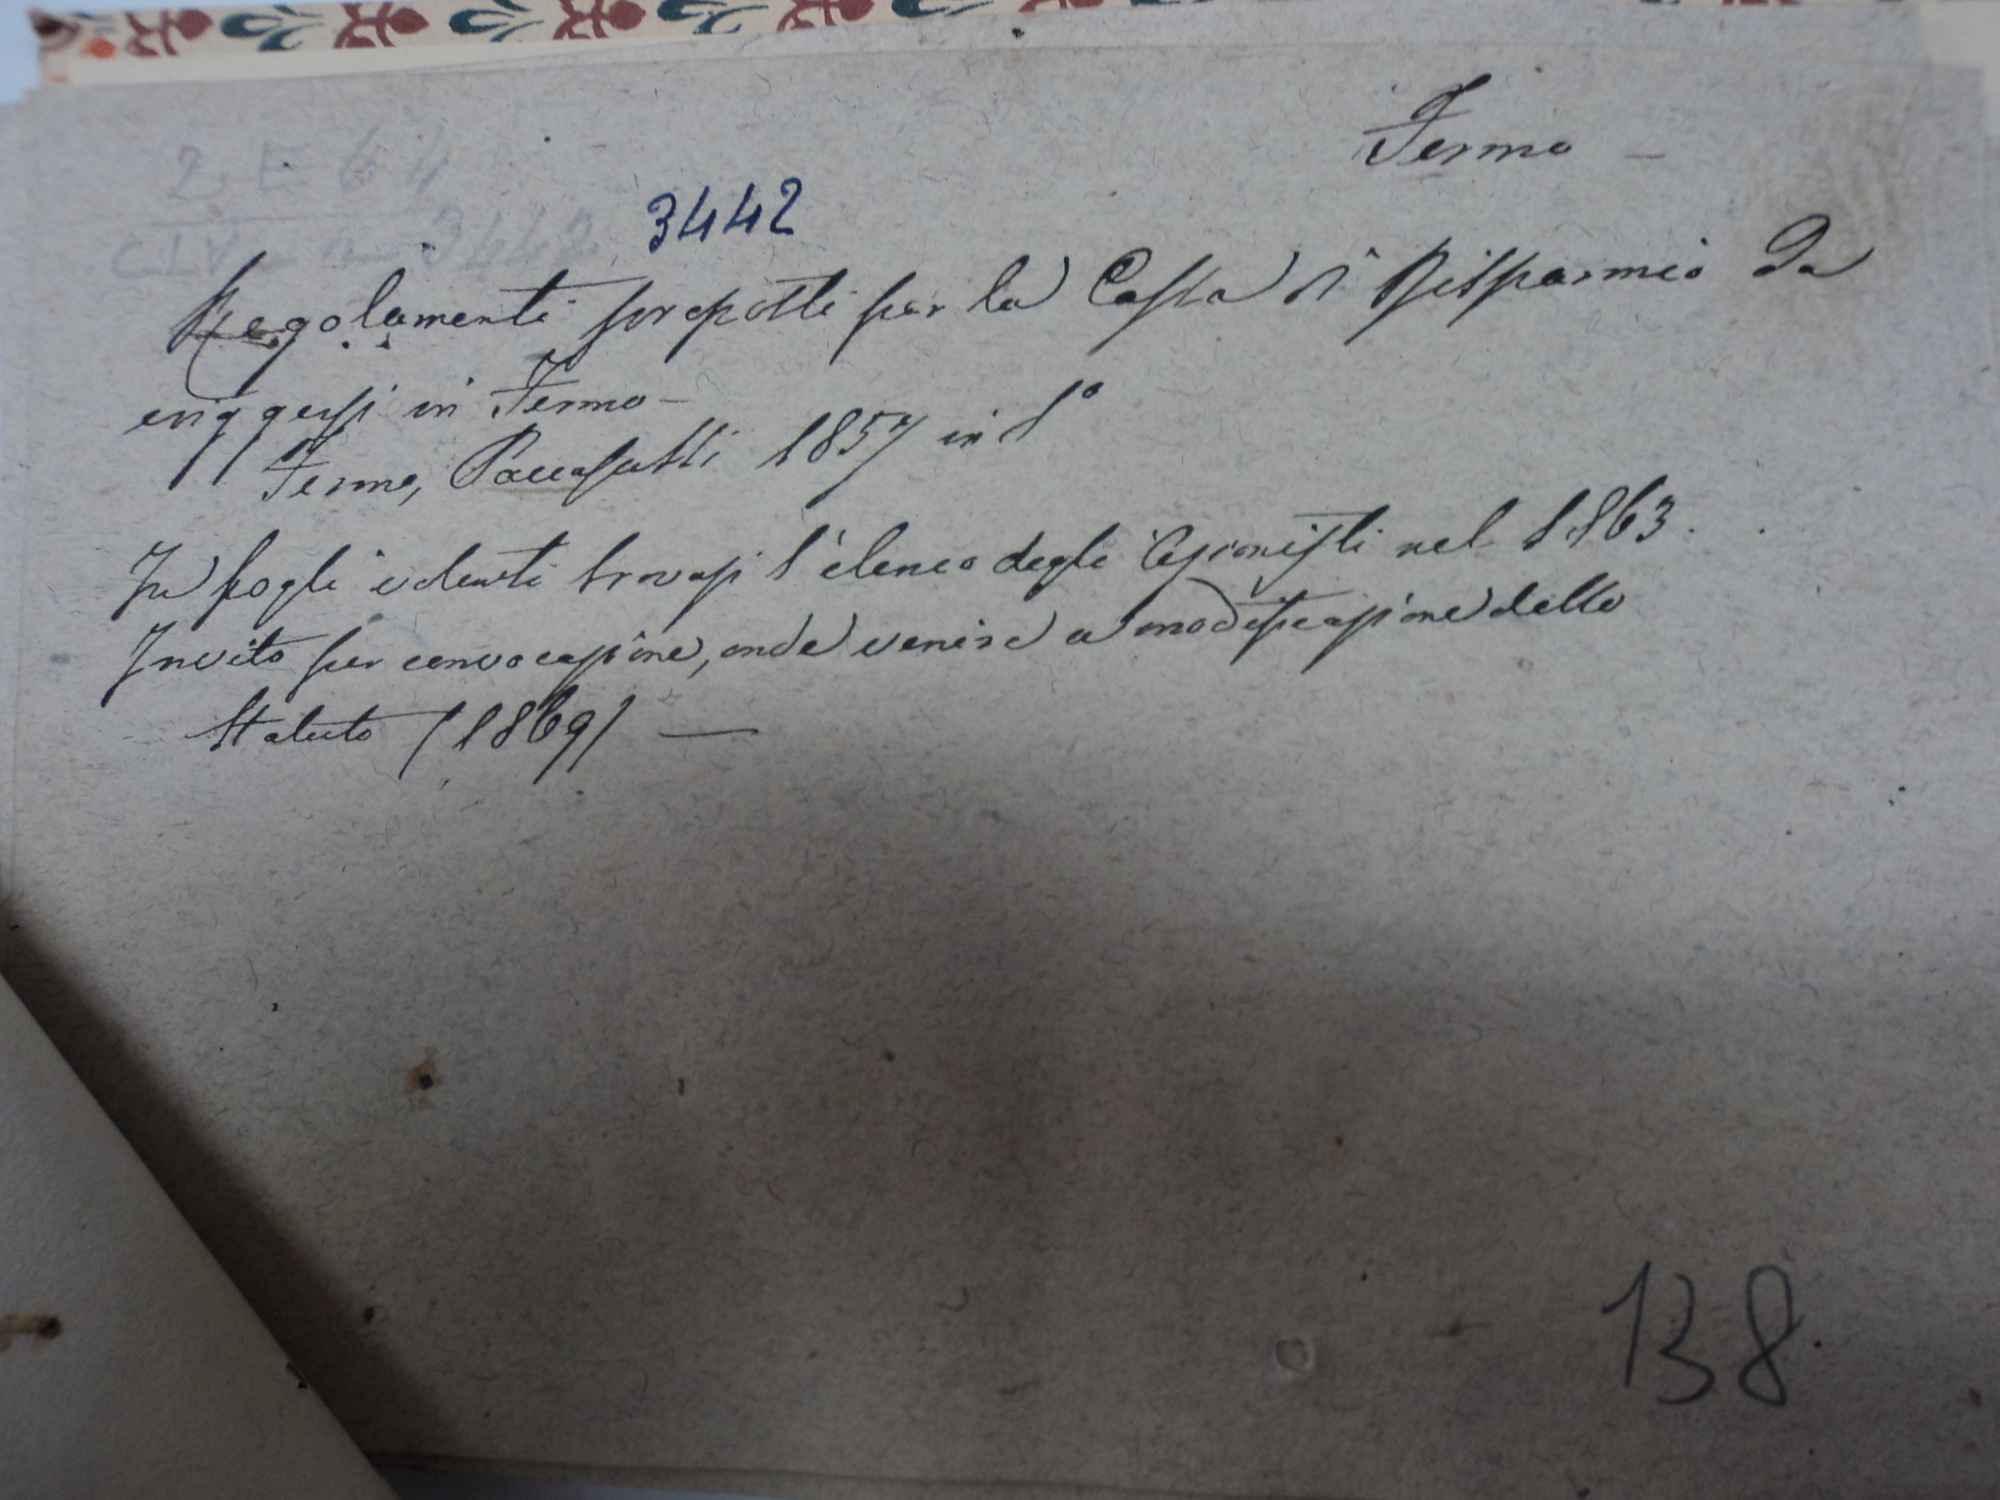 Fermo –
2 E 64
CIV – n – 3442
3442
Regolamenti proposti per la Cassa di Risparmio da
eriggersi in Fermo –
Fermo, Paccasassi 1857 in 8°
In fogli trovasi l'elenco degli Azionisti nel 1863.
Invito per convocazione, onde venire a modificazione dello
Statuto (1869) —
138